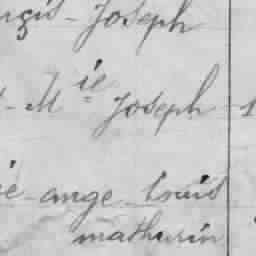 Joseph
Mie Joseph
ange Louis
mathurin